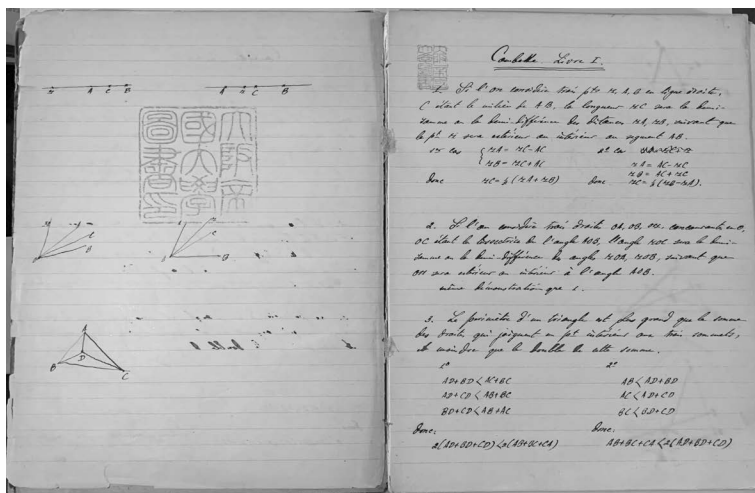 M A C B
A M C B
大阪帝
國大學
圖書印
M
C
B
A
C
O B
A
D
B
C
Combette. Livre I.
1. Si l'on considère trois pts M, A, B en ligne droite,
C étant le milieu de AB, la longueur MC sera la demi-
somme ou la demi-différence des distances MA, MB, suivant que
le pt M sera extérieur ou intérieur au segment AB.
1er cas MA = MC-AC 2e cas
MB = MC+AC MA = AC-MC
MB = AC+MC
Donc MC = ½ (MA+MB) Donc MC = ½ (MB-MA).
2. Si l'on considère trois droites OA, OB, OM concourantes en O,
OC étant la bissectrice de l'angle AOB, l'angle MOC sera la demi-
somme ou la demi-différence des angles MOA, MOB, suivant que
OM sera extérieur ou intérieur à l'angle AOB.
même démonstration que 1.
3. Le périmètre d'un triangle est plus grand que la somme
des droites qui joignent un pt intérieur aux trois sommets,
et moindre que le double de cette somme.
1o 2o
AD+BD < AC+BC AB < AD+BD
AD+CD < AB+BC AC < AD+CD
BD+CD < AB+AC BC < BD+CD
Donc: Donc:
2(AD+BD+CD) < 2(AB+BC+CA) AB+BC+CA < 2(AD+BD+CD)